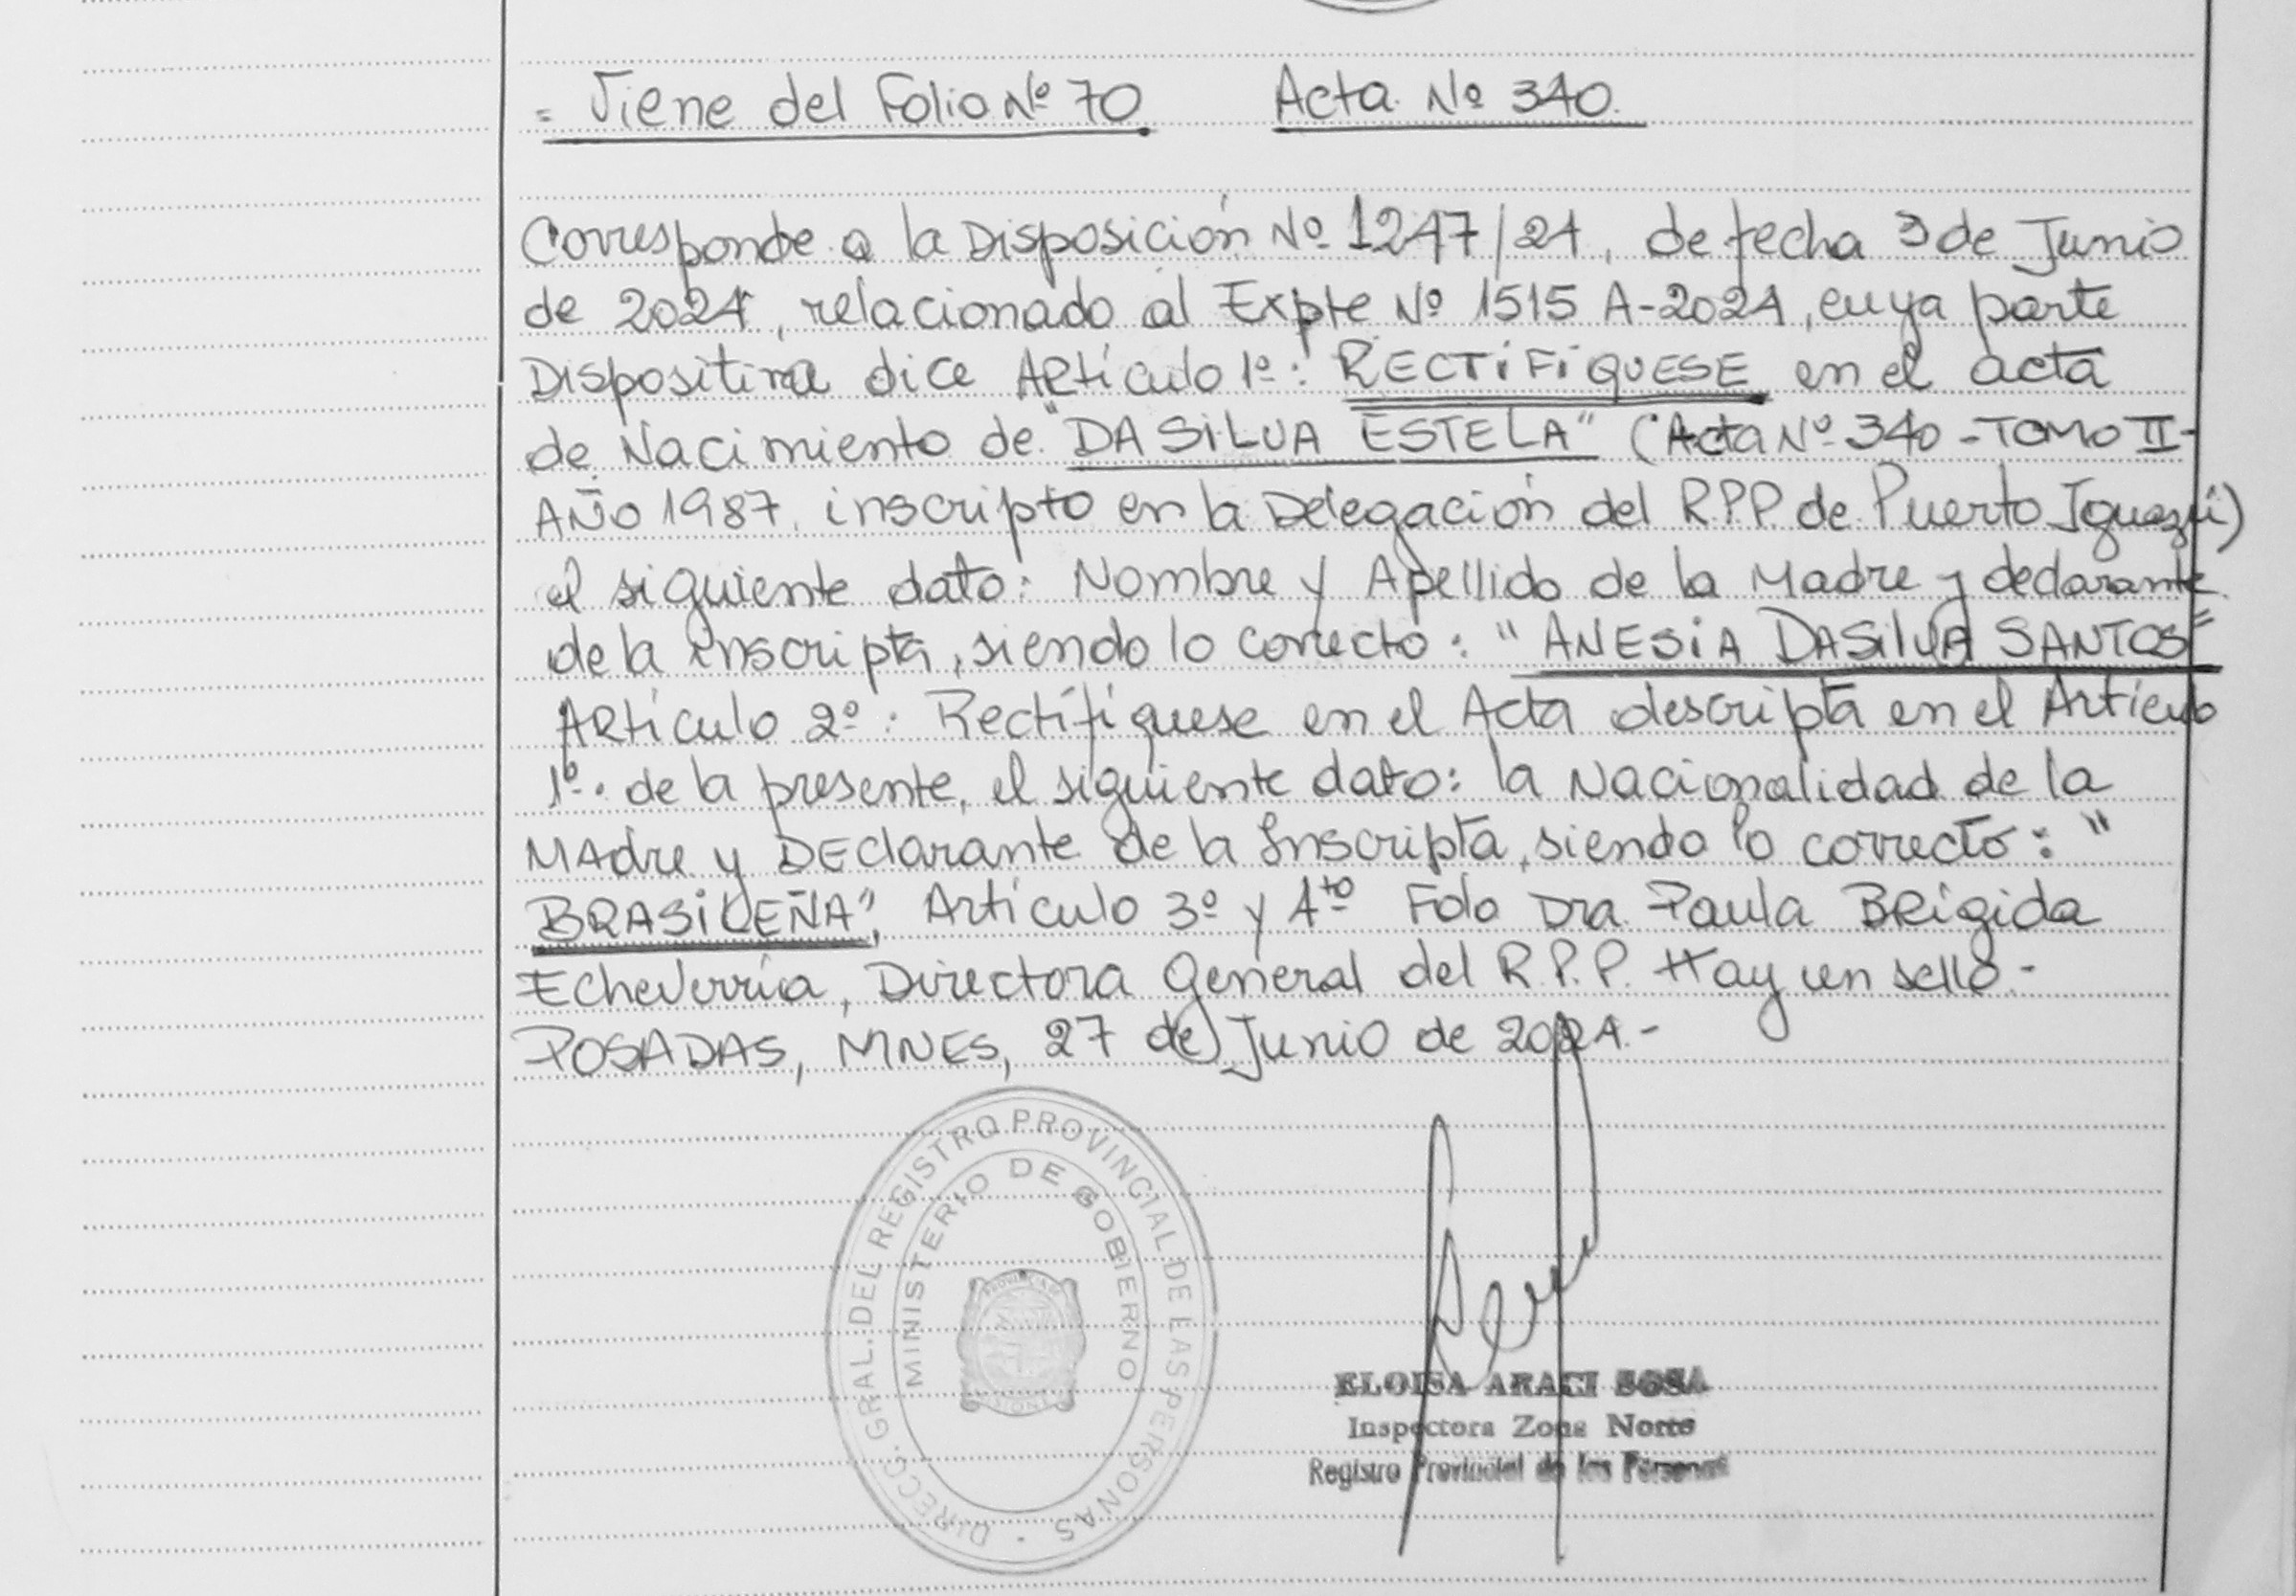 = Viene del Folio Nº 70. Acta Nº 340.
Corresponde a la Disposición Nº 1247/24, de fecha 3 de Junio
de 2024, relacionado al Expte Nº 1515 A-2024, cuya parte
Dispositiva dice Artículo 1º: RECTIFIQUESE en el acta
de Nacimiento de "DA SILVA ESTELA" (Acta Nº 340 - TOMO II -
AÑO 1987. inscripto en la Delegación del R.P.P. de Puerto Iguazú)
el siguiente dato: Nombre y Apellido de la Madre y declarante
de la inscripta, siendo lo correcto: "ANESIA DA SILVA SANTOS"
Artículo 2º: Rectifíquese en el Acta descripta en el Artículo
1º. de la presente, el siguiente dato: la Nacionalidad de la
Madre y DEclarante de la Inscripta, siendo lo correcto: "
BRASILEÑA", Artículo 3º y 4to Fdo Dra. Paula BRígida
Echeverría, Directora General del R.P.P. Hay un sello.-
POSADAS, MNES, 27 de Junio de 2024.-
DIRECC. GRAL. DEL REGISTRO PROVINCIAL DE LAS PERSONAS
MINISTERIO DE GOBIERNO
PROVINCIA DE
MISIONES
ELOISA ARACI SOSA
Inspectora Zona Norte
Registro Provincial de las Personas